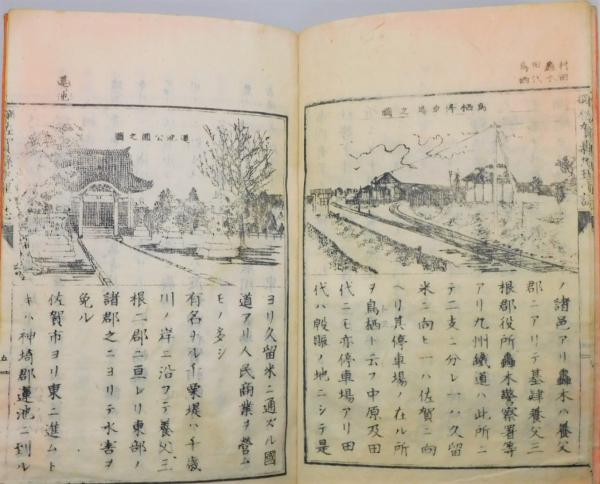 村田
轟木
田代
鳥栖
鳥栖停車場之圖
ノ諸邑アリ轟木ハ養父
郡ニアリテ基肄養父三
根郡役所轟木警察署等
アリ九州鐵道ハ此所ニ
テ二支ニ分レ一ハ久留
米ニ向ヒ一ハ佐賀ニ向
ヘリ其停車場ノ在ル所
ヲ鳥栖ト云フ中原及田
代ニモ亦停車場アリ田
代ハ殷賑ノ地ニシテ是
蓮池
蓮池公園之圖
ヨリ久留米ニ通ズル國
道アリ人民商業ヲ營ム
モノ多シ
有名ナル千栗堤ハ千歳
川ノ岸ニ沿フテ養父三
根二郡ニ亘レリ東部ノ
諸郡之ニヨリテ水害ヲ
免ル
佐賀市ヨリ東ニ進ムト
キハ神埼郡蓮池ニ到ル
五